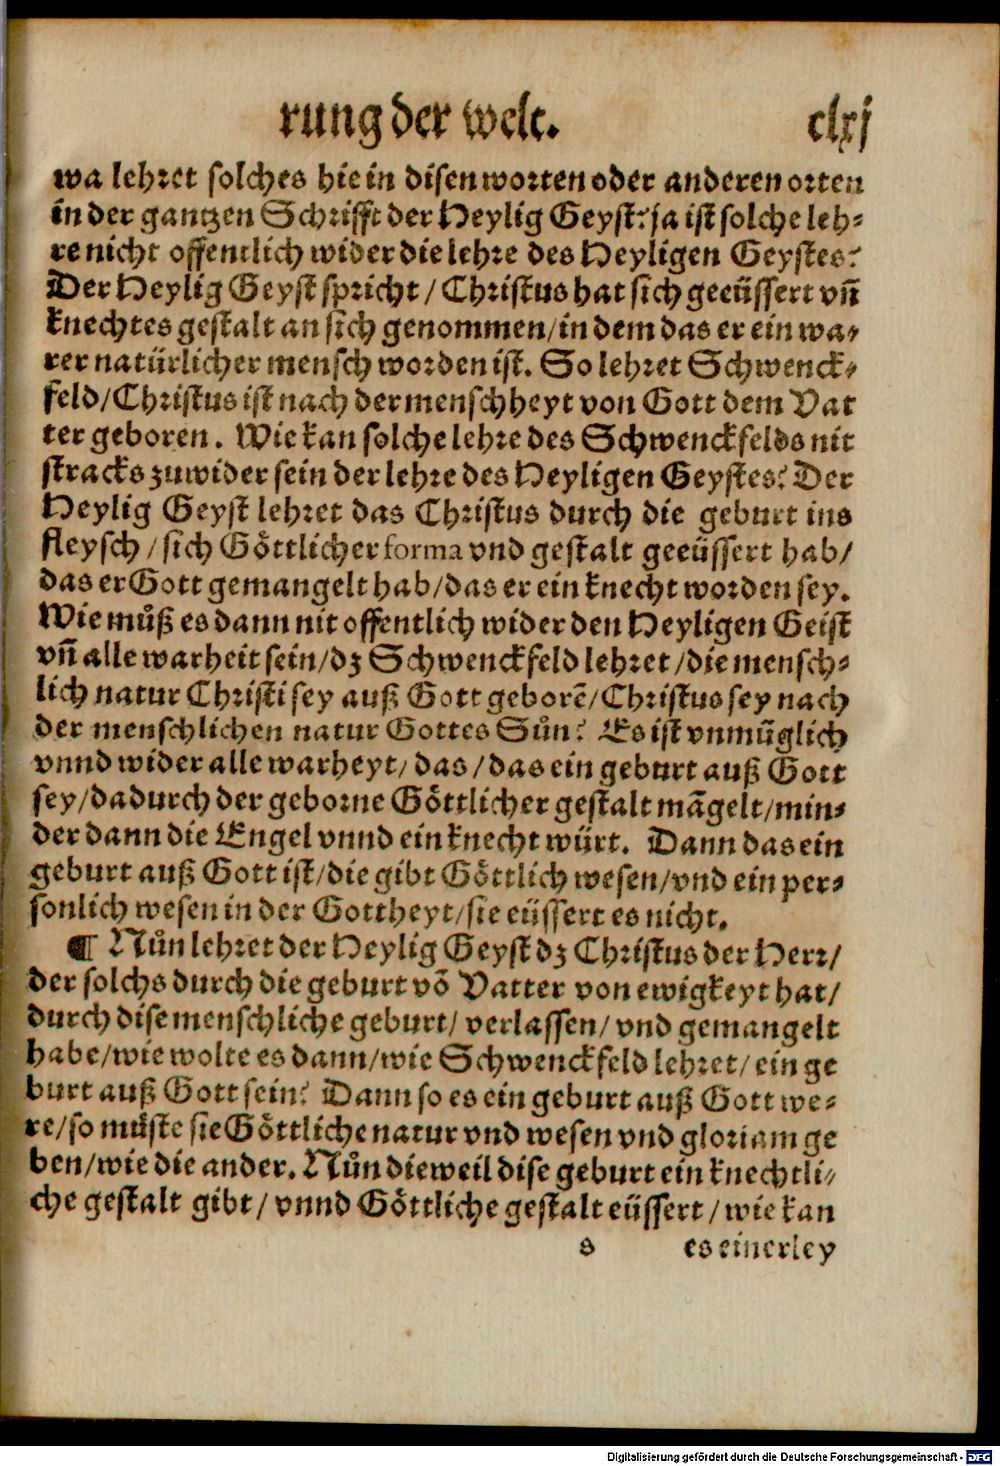 rung der welt. clxj
wa lehret solches hie in disen worten oder anderen orten
in der gantzen Schrifft der Heylig Geyst? ja ist solche leh⸗
re nicht offentlich wider die lehre des Heyligen Geystes?
Der Heylig Geyst spricht / Christus hat sich geeüssert vñ
knechtes gestalt an sich genommen/in dem das er ein wa⸗
rer natürlicher mensch worden ist. So lehret Schwenck⸗
feld/Christus ist nach der menschheyt von Gott dem Vat
ter geboren. Wie kan solche lehre des Schwenckfelds nit
stracks zuwider sein der lehre des Heyligen Geystes? Der
Heylig Geyst lehret das Christus durch die geburt ins
fleysch / sich Göttlicher forma vnd gestalt geeüssert hab/
das er Gott gemangelt hab/das er ein knecht worden sey.
Wie muͦß es dann nit offentlich wider den Heyligen Geist
vñ alle warheit sein/dz Schwenckfeld lehret /die mensch⸗
lich natur Christi sey auß Gott geborē/Christus sey nach
der menschlichen natur Gottes Suͦn? Es ist vnmüglich
vnnd wider alle warheyt/ das /das ein geburt auß Gott
sey/dadurch der geborne Göttlicher gestalt mãgelt/min⸗
der dann die Engel vnnd ein knecht würt. Dann das ein
geburt auß Gott ist/die gibt Göttlich wesen/vnd ein per⸗
sonlich wesen in der Gottheyt/sie eüssert es nicht.
¶ Nuͦn lehret der Heylig Geyst dz Christus der Herr/
der solchs durch die geburt võ Vatter von ewigkeyt hat/
durch dise menschliche geburt/ verlassen/ vnd gemangelt
habe/wie wolte es dann/wie Schwenckfeld lehret/ ein ge
burt auß Gott sein? Dann so es ein geburt auß Gott we⸗
re/so müste sie Göttliche natur vnd wesen vnd gloriam ge
ben/wie die ander. Nuͦn dieweil dise geburt ein knechtli⸗
che gestalt gibt/ vnnd Göttliche gestalt eüssert / wie kan
s es einerley
Digitalisierung gefördert durch die Deutsche Forschungsgemeinschaft - DFG